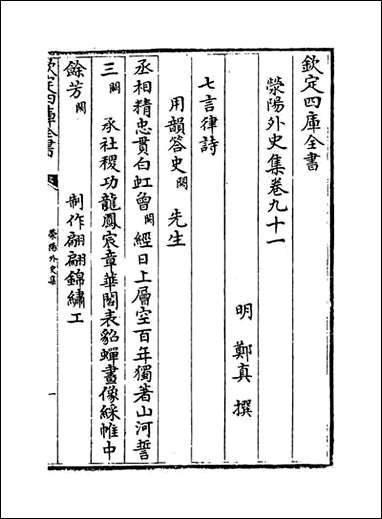 欽定四庫全書
滎陽外史集卷九十一
明 鄭真 撰
七言律詩
用韻答史闕 先生
丞相精忠貫白虹曾闕經日上層空百年獨著山河誓
三闕 承社稷功龍鳳宸章華閣表貂蟬畫像綵帷中
餘芳闕 制作翩翩錦繡工
欽定四庫全書
滎陽外史集
一